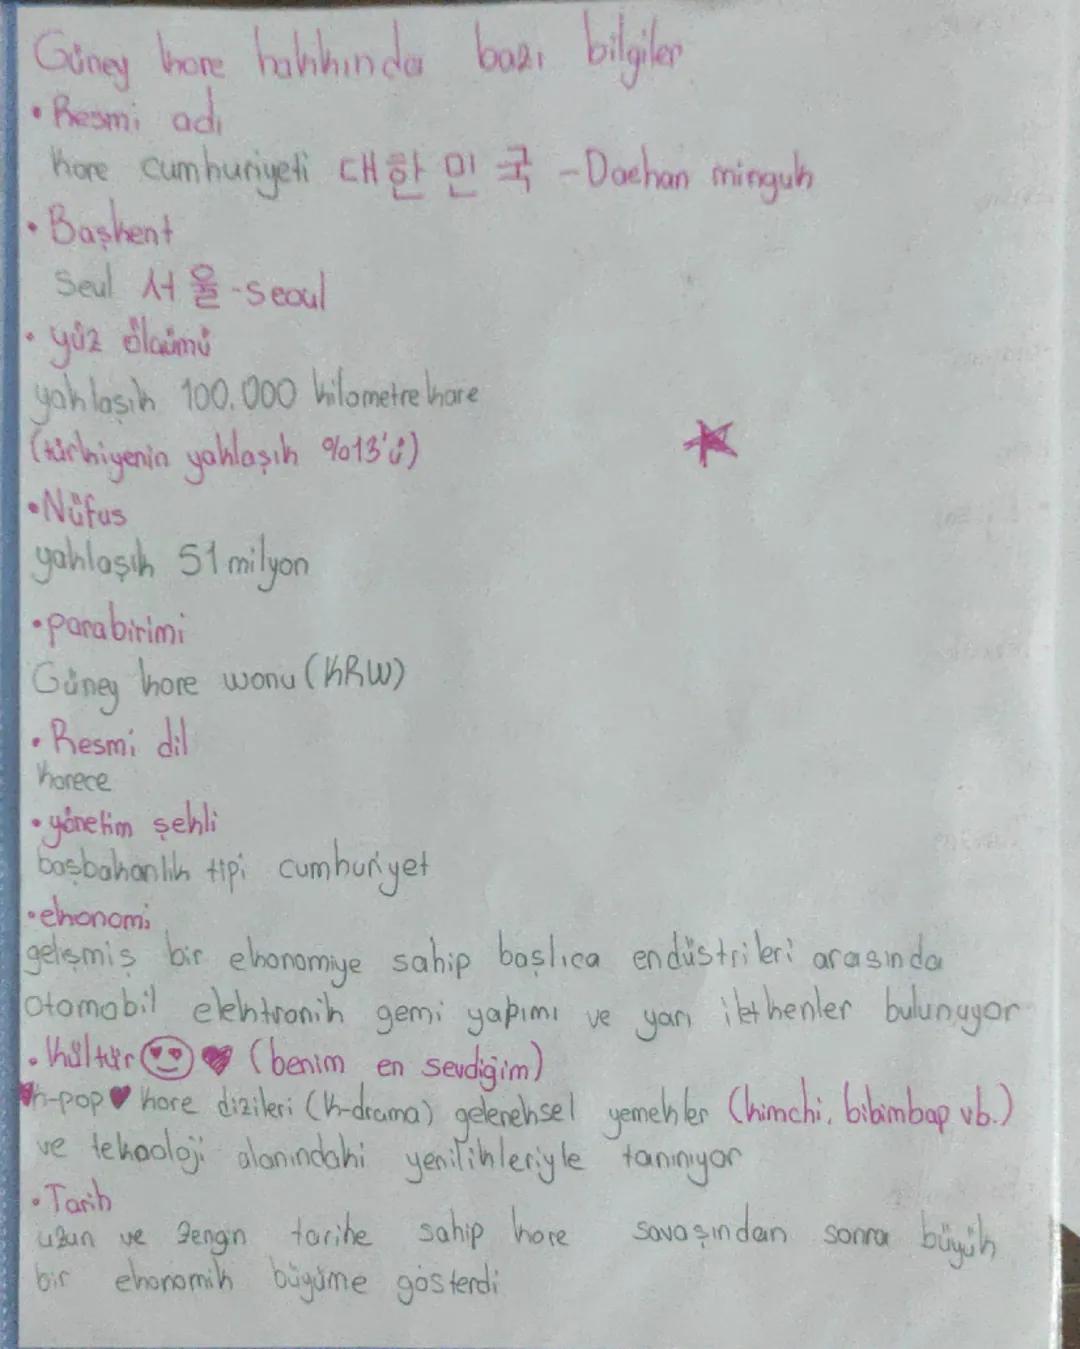 Güney kore hakkında bazı bilgiler
• Resmi adı
Kore cumhuriyeti 대한민국 - Daehan minguk
• Başkent
Seul 서울 - seoul
• yüz ölçümü
yaklaşık 100.000 kilometre kare
(türkiyenin yaklaşık %13'ü)
• Nüfus
yaklaşık 51 milyon
• parabirimi
Güney kore wonu (KRW)
• Resmi dil
korece
• yönetim şekli
başbakanlık tipi cumhuriyet
• ekonomi
gelişmiş bir ekonomiye sahip başlıca endüstrileri arasında
otomobil elektronik gemi yapımı ve yarı bulunuyor
• kültür 😍 ♥ (benim en sevdiğim)
♥k-pop♥ kore dizileri (k-drama) geleneksel yemekler (kimchi, bibimbap vb.)
ve teknoloji alanındaki yenilikleriyle tanınıyor
• Tarih
uzun ve zengin tarihe sahip kore savaşından sonra büyük
bir ekonomik büyüme gösterdi